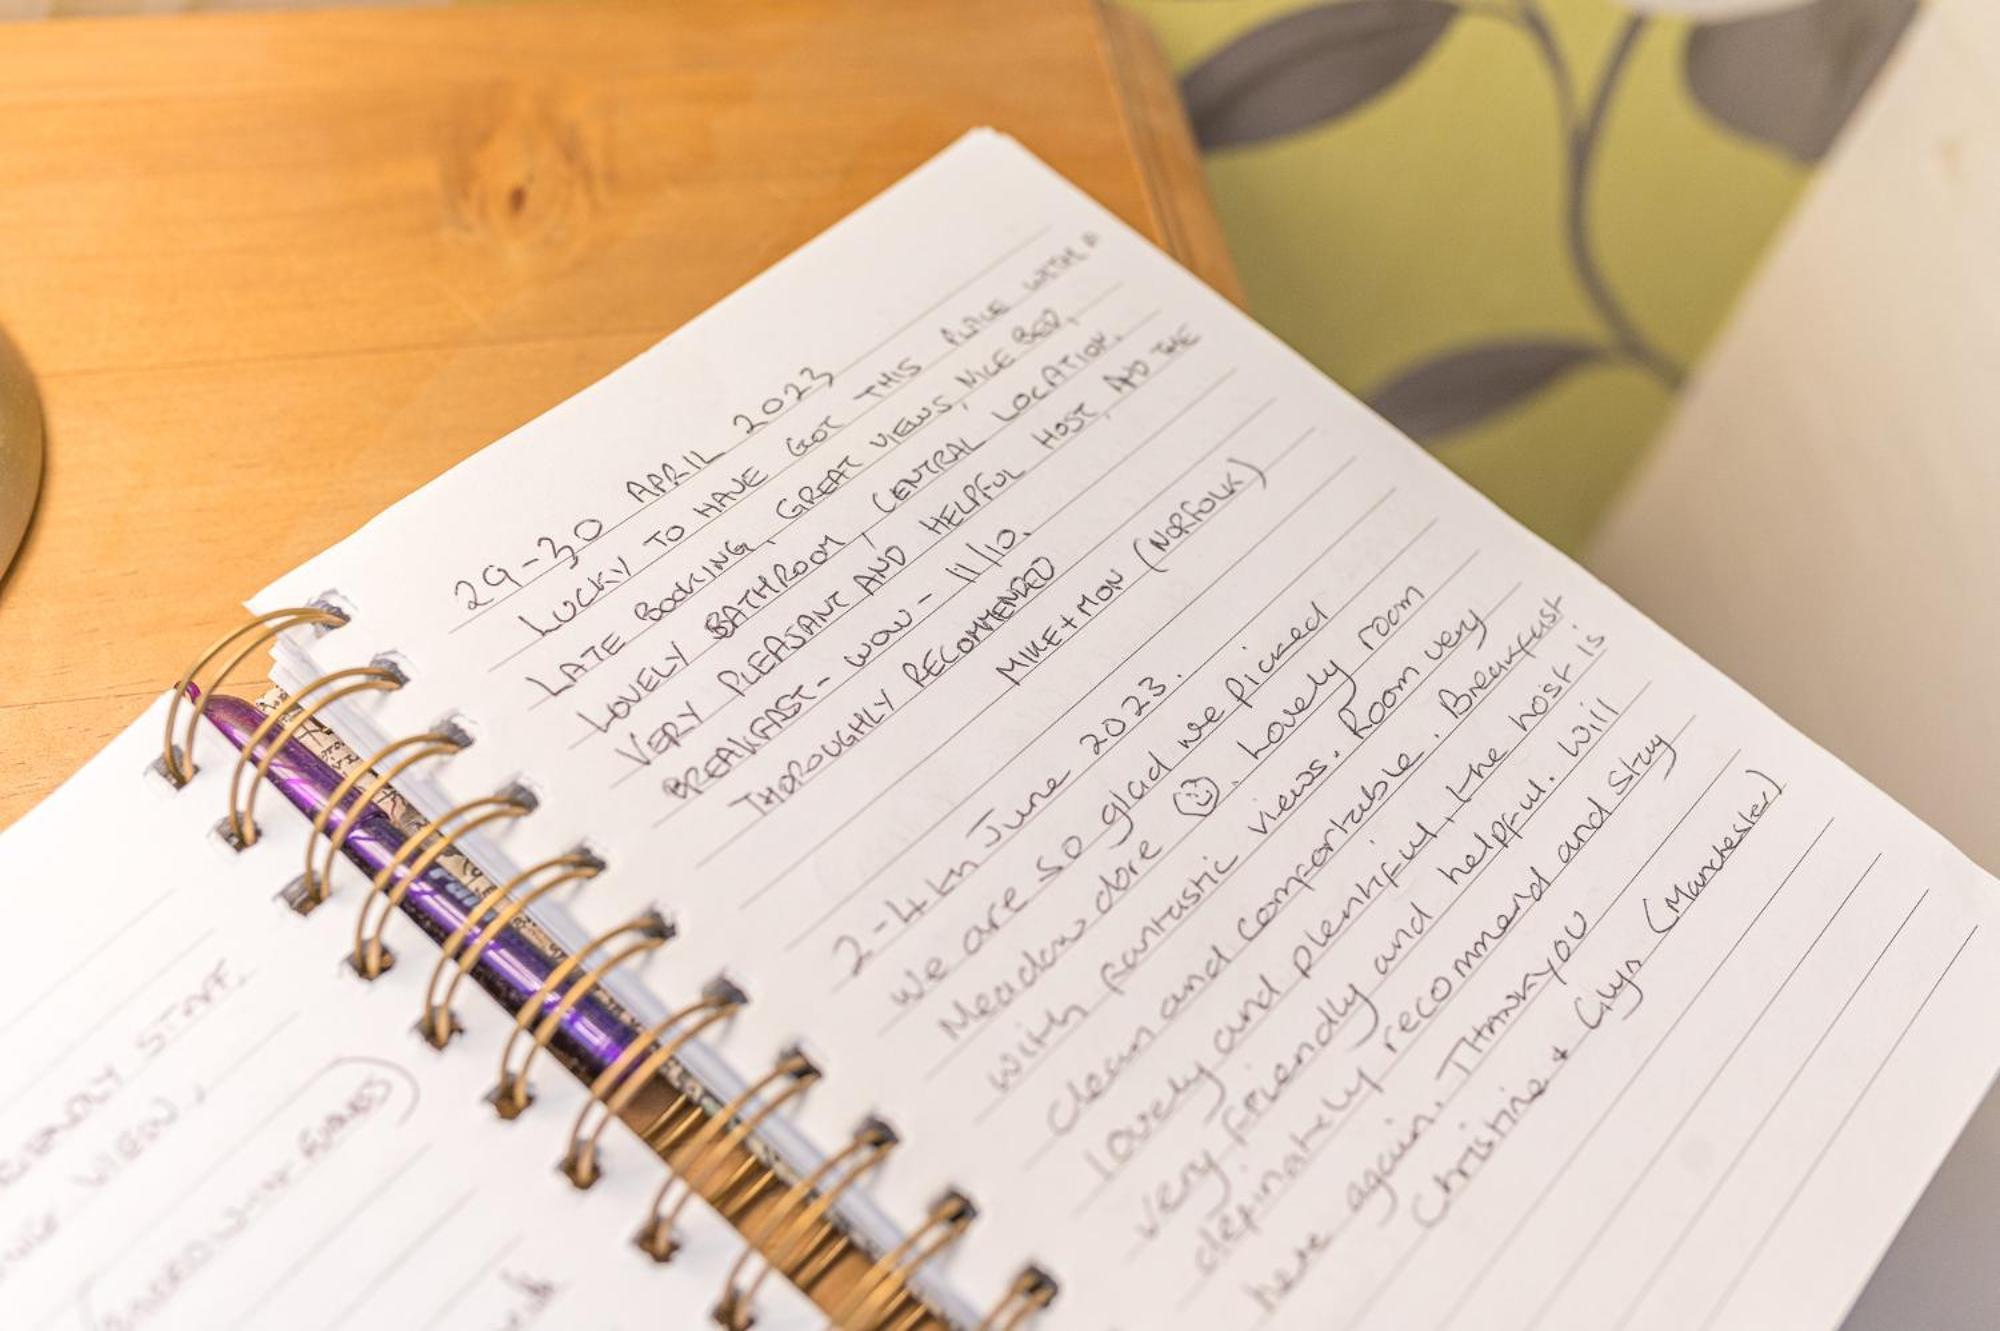 29-30 APRIL 2023
LUCKY TO HAVE GOT THIS PLACE WITH A
LATE BOOKING, GREAT VIEWS, NICE BED,
LOVELY BATHROOM, CENTRAL LOCATION.
VERY PLEASANT AND HELPFUL HOST, AND THE
BREAKFAST - WOW - 11/10.
THOROUGHLY RECOMMENDED
MIKE + MON (NORFOLK)
2-4th June 2023.
We are so glad we picked
Meadowdore ☺. Lovely room
with fantastic views. Room very
clean and comfortable. Breakfast
lovely and plentiful, the host is
very friendly and helpful. Will
definately recommend and stay
here again. THANKYOU
Christine + Glyn (Manchester)
STAFF.
VIEW,